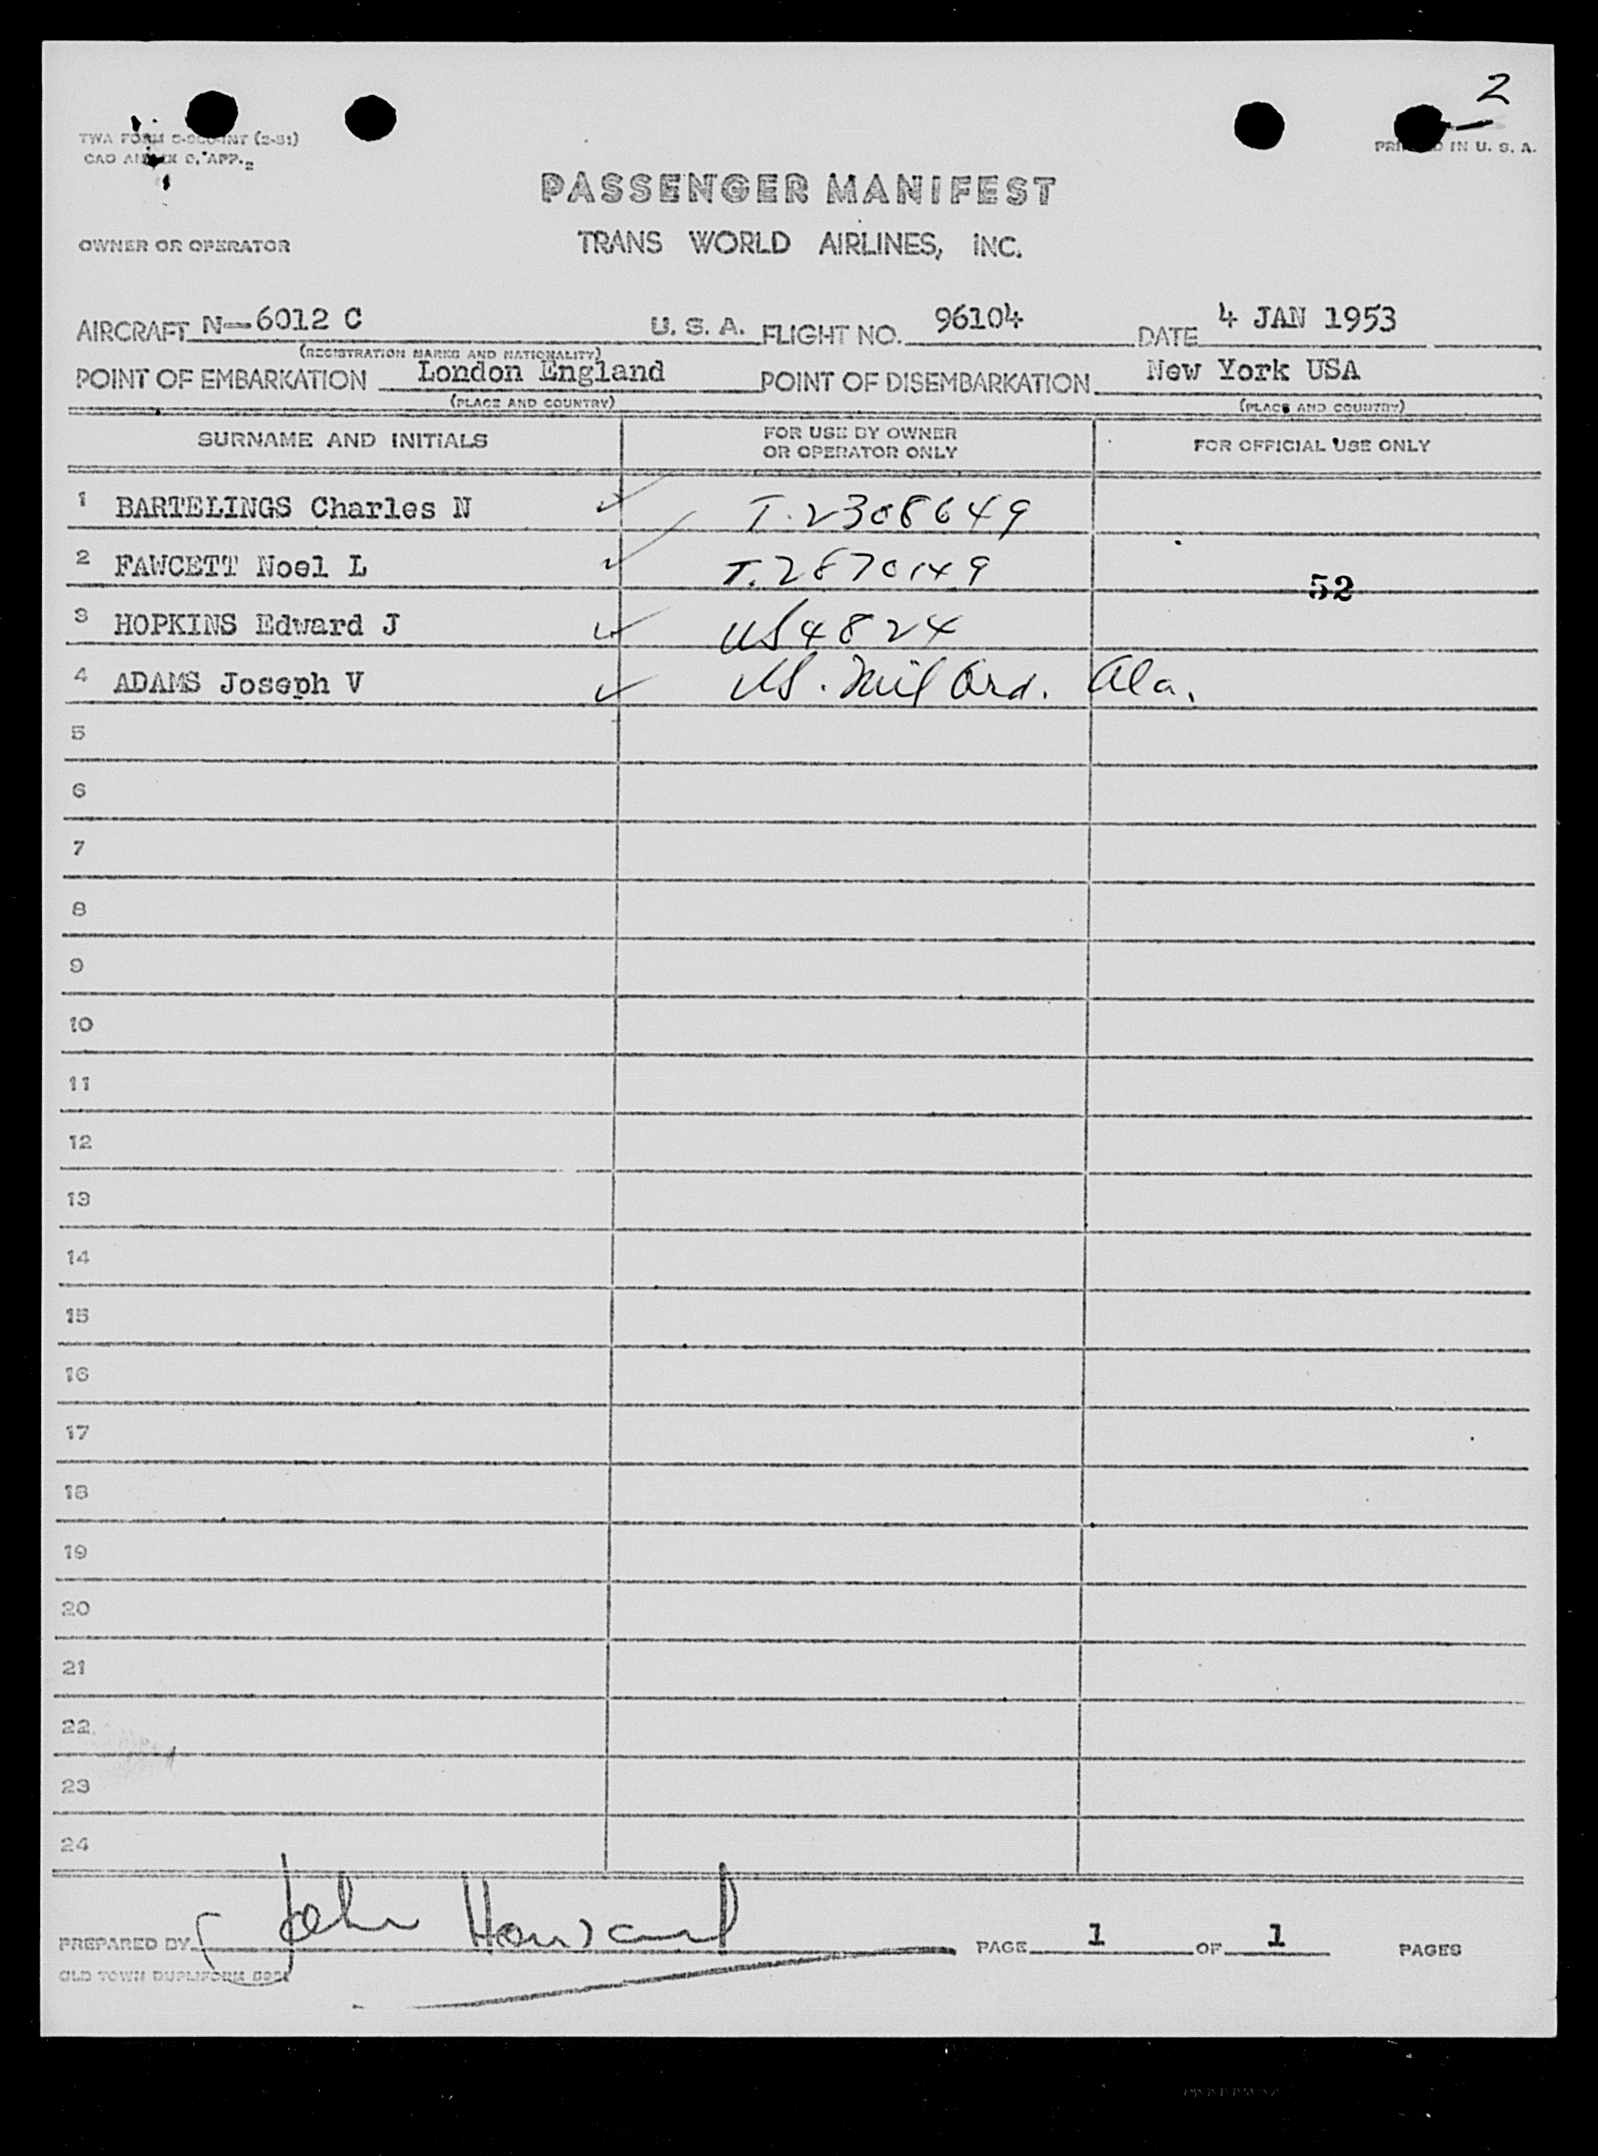 2
TWA FORM (2-51)
PRINTED IN U. S. A.
CAO ANNEX 9, APP. 2
PASSENGER MANIFEST
OWNER OR OPERATOR TRANS WORLD AIRLINES, INC.
AIRCRAFT N-6012 C U. S. A. FLIGHT NO. 96104 DATE 4 JAN 1953
(REGISTRATION MARKS AND NATIONALITY)
POINT OF EMBARKATION London England POINT OF DISEMBARKATION New York USA
(PLACE AND COUNTRY) (PLACE AND COUNTRY)
SURNAME AND INITIALS FOR USE BY OWNER OR OPERATOR ONLY FOR OFFICIAL USE ONLY
1 BARTELINGS Charles N T. 2308649
2 FAWCETT Noel L T. 2870149
52
3 HOPKINS Edward J US 4824
4 ADAMS Joseph V US. Mil Ord. Ala.
5
6
7
8
9
10
11
12
13
14
15
16
17
18
19
20
21
22
23
24
PREPARED BY John PAGE 1 OF 1 PAGES
OLD TOWN DUPLIFORM